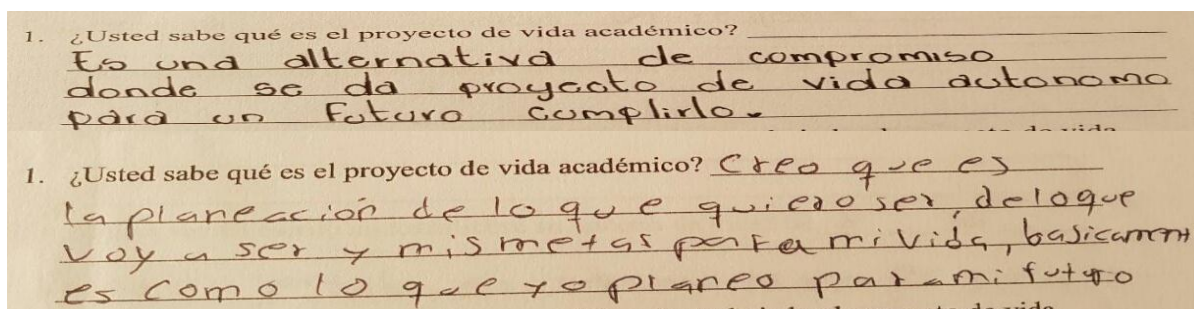 1. ¿Usted sabe qué es el proyecto de vida académico?
Es una alternativa de compromiso
donde se da proyecto de vida autonomo
para un Futuro cumplirlo.
1. ¿Usted sabe qué es el proyecto de vida académico? Creo que es
la planeación de lo que quiero ser, de lo que
voy a ser y mis metas para mi vida, basicament
es como lo que yo planeo para mi futuro